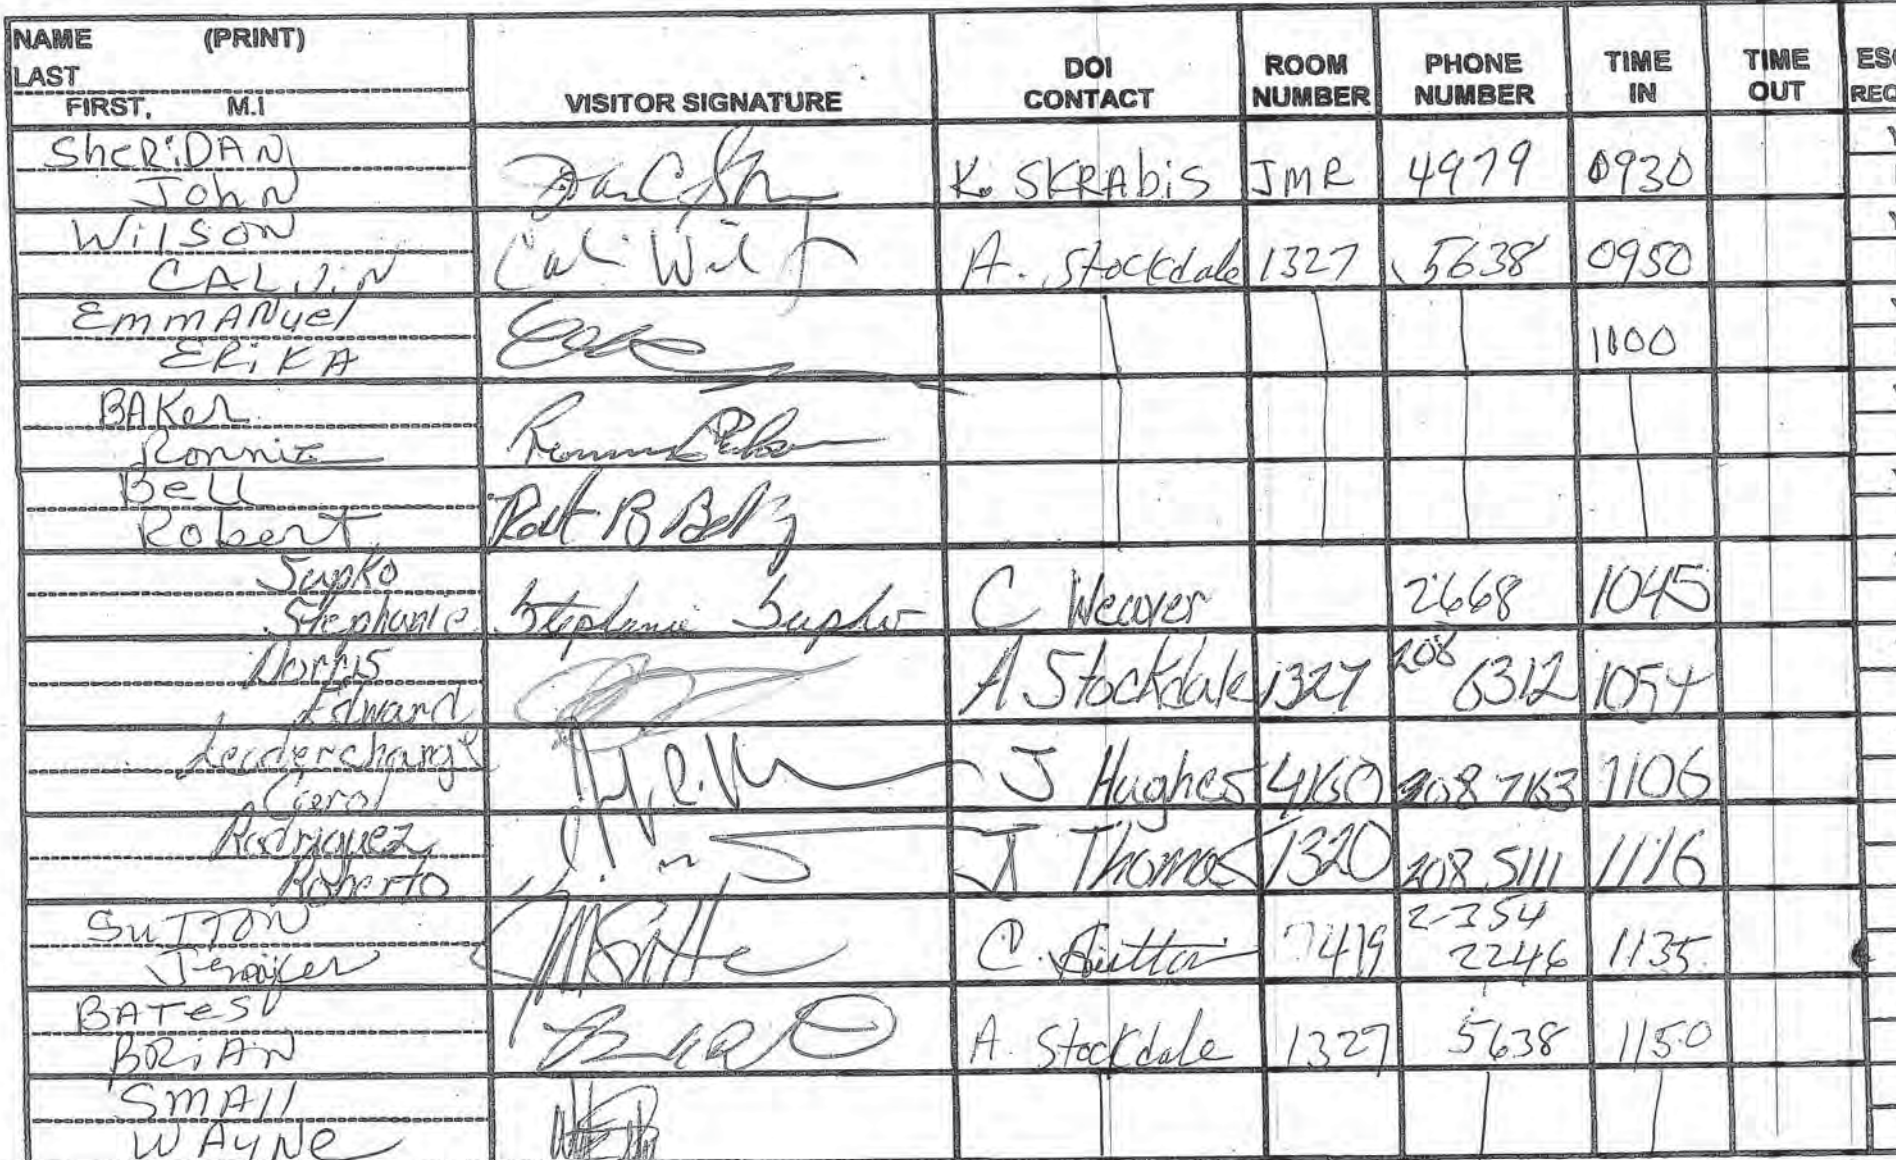 NAME (PRINT)
LAST
FIRST, M.I
VISITOR SIGNATURE
DOI CONTACT
ROOM NUMBER
PHONE NUMBER
TIME IN
TIME OUT
SheRiDAN
John
K. SKRAbiS JMR 4979 0930
WilSON
CALViN
A. Stockdale 1327 5638 0950
EmmANuel
ERiKA
1100
BAKer
Ronnie
Bell
Robert
Supko
Stephanie
Stephanie Supko
C Weaver 2668 1045
Norris
Edward
A Stockdale 1327 208 6312 1054
Carol
J Hughes 4160 208 7163 1106
Rodriguez
Roberto
J Thomas 1320 208 5111 1116
SuTTON
Jennifer
C. Sutton 7419 2-354 2246 1135
BATeS
BRiAN
A. Stockdale 1327 5638 1150
SMAll
WAyNe